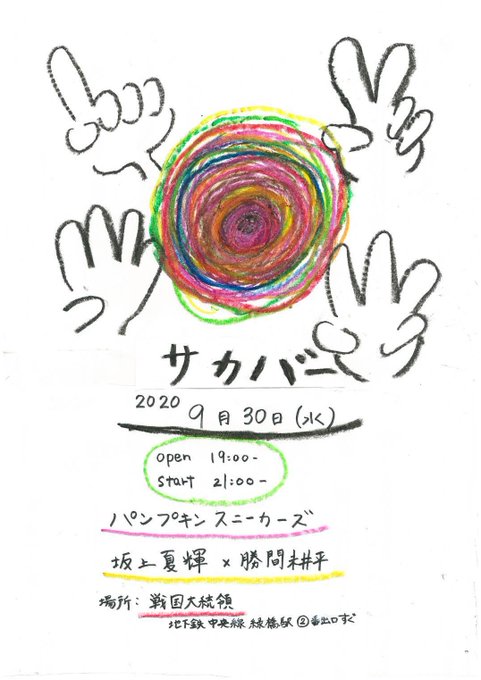 サカバー
2020 9月30日(水)
open 19:00-
start 21:00-
パンプキンスニーカーズ
坂上夏輝 × 勝間耕平
場所:戦国大統領
地下鉄 中央線 緑橋駅 ②番出口すぐ